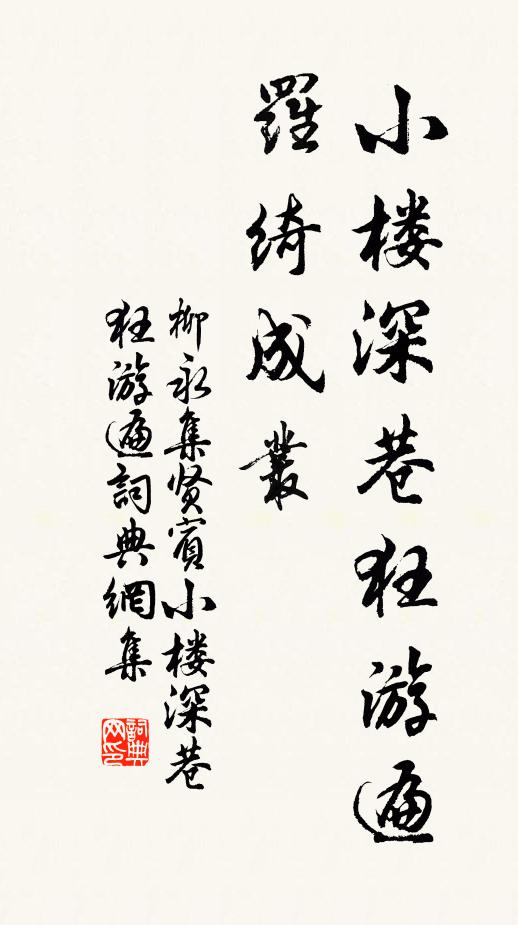 小楼深巷狂游遍
羅綺成叢
柳永集贤賓小楼深巷
狂游遍詞典網集
詞典
网印